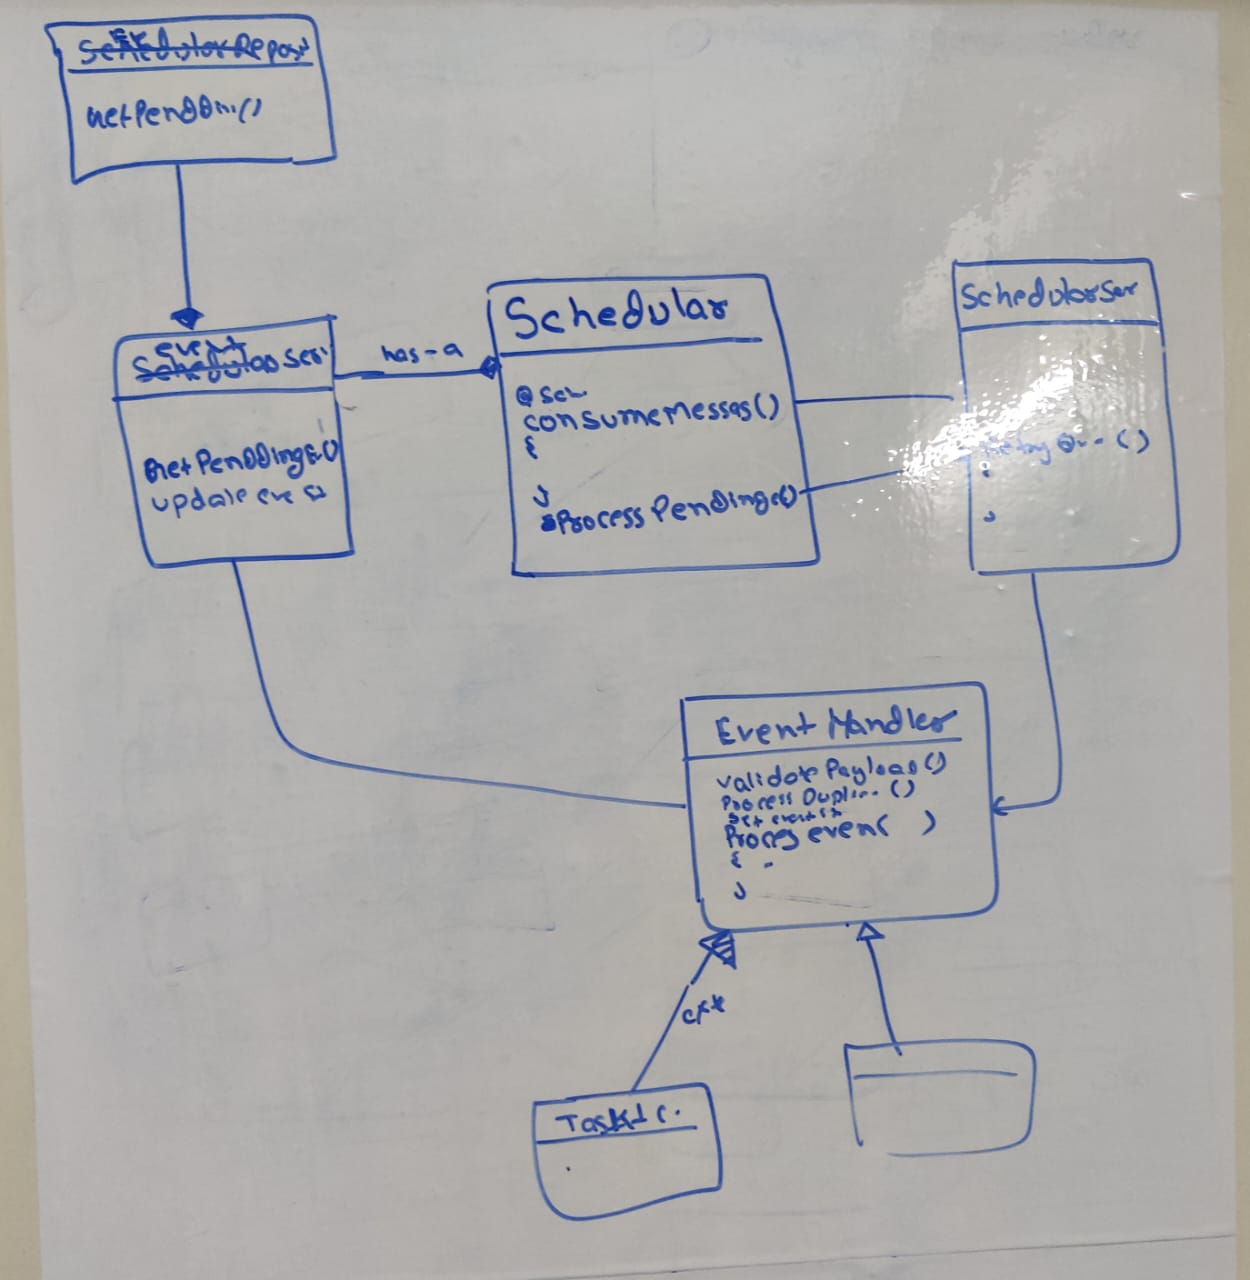 SchedularRepos
GetPendin.()
event
Schedular Ser
GetPendingE()
update eve
has-a
Schedular
@Sch
consumeMesses()
{
}
ProcessPendinge()
SchedularSer
()
}
Event Handler
validatePayload()
Process Dupli... ()
Set event
Proces even( )
{
}
ext
Task1 c.